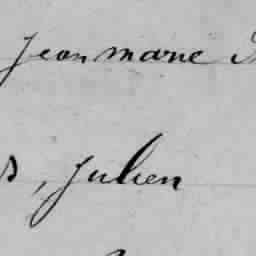 Jean marie
, Julien